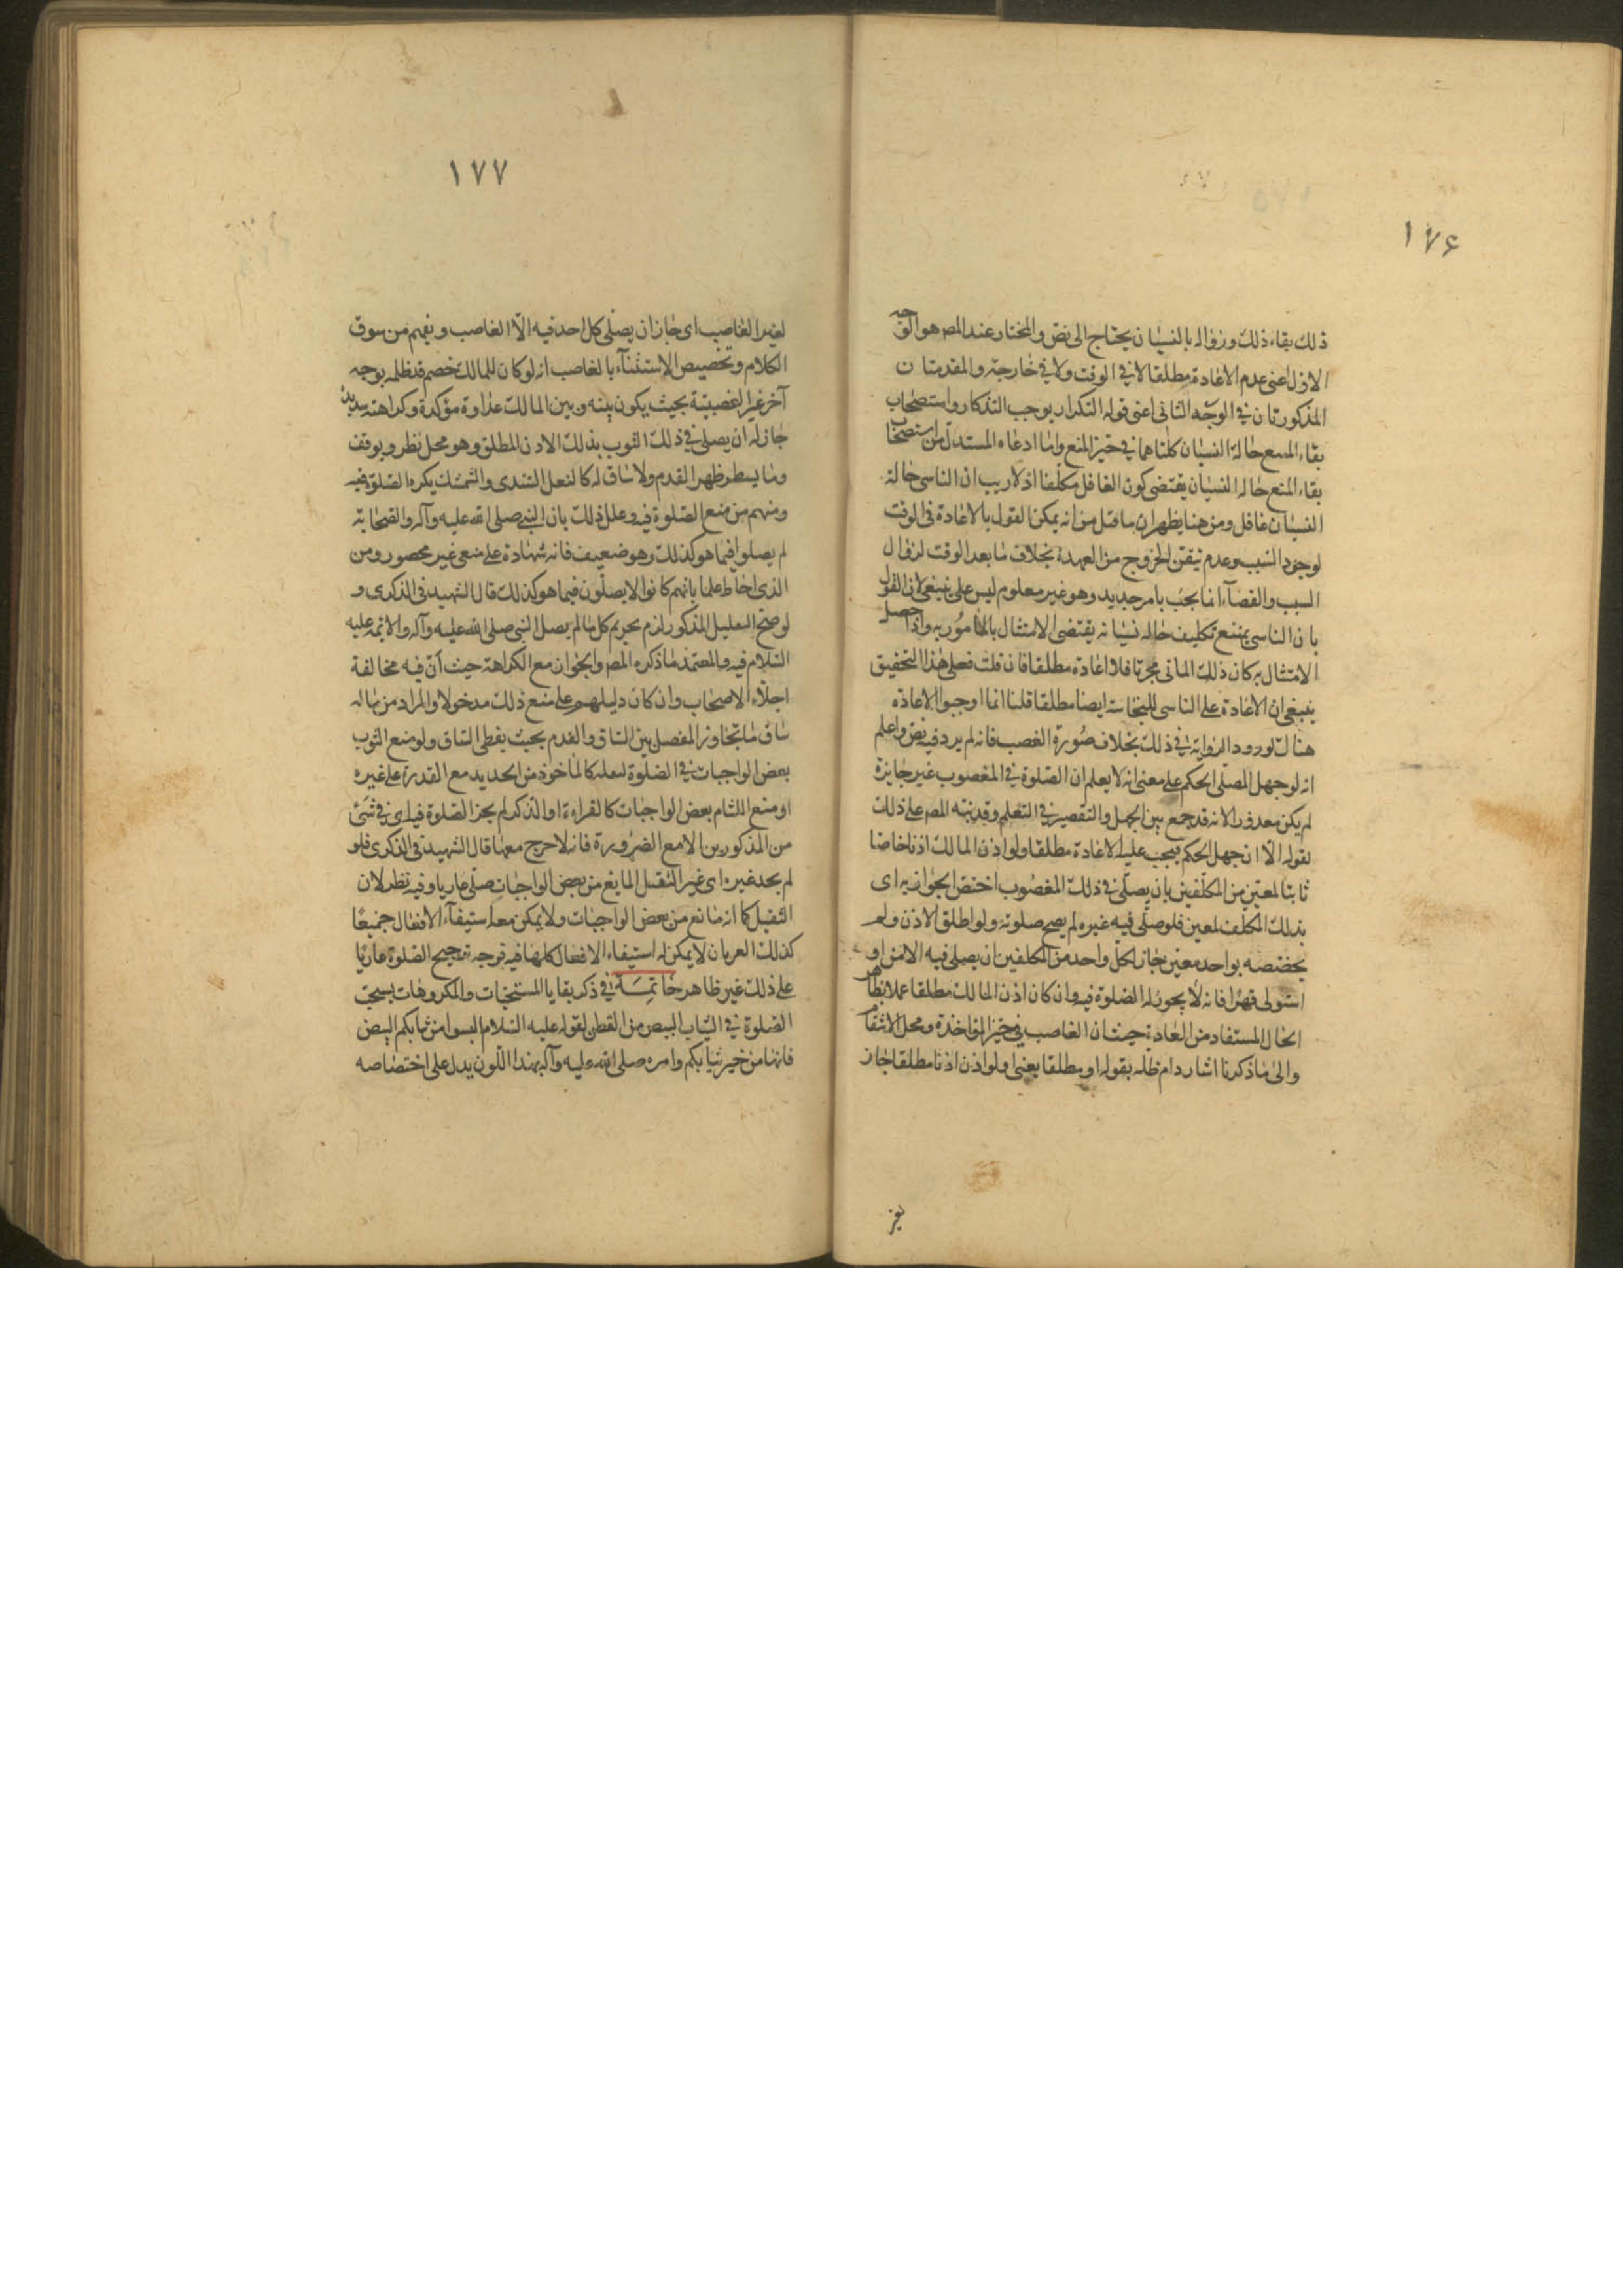 ١٧۶
ذلك بقاء ذلك وزواله بالنسيان يحتاج الى نص والمختار عند المص هو الوجه
الاول اعنى عدم الاعادة مطلقا لا في الوقت ولا في خارجه والمقدمتان
المذكورتان في الوجه الثانى اعنى قوله التكرار يوجب التذكار واستصحاب
بقاء المنع حالة النسيان كلتاهما في حيز المنع واما ادعاه المستدل من استصحاب
بقاء المنع حاله النسيان يقتضى كون الغافل مكلفا اذ لا ريب ان الناسى حالة
النسيان غافل ومن هنا يظهر ان ما قيل من انه يمكن القول بالاعادة فى الوقت
لوجود السبب وعدم تيقن الخروج من العهدة بخلاف ما بعد الوقت لزوال
السبب والقضآء انما يجب بامر جديد وهو غير معلوم ليس على ينبغى لان القول
بان الناسى يمتنع تكليف حاله نسيانه يقتضى الامتثال بالمامور به واذا حصل
الامتثال به كان ذلك الماتى مجزيا فلا اعادة مطلقا فان قلت فعلى هذا التحقيق
ينبغى ان الاعادة على الناسى للنجاسة ايضا مطلقا قلنا انما اوجبوا الاعادة
هناك لورود الرواية في ذلك بخلاف صورة الغصب فانه لم يرد فيه نص واعلم
انه لو جهل المصلى الحكم على معنى انه لا يعلم ان الصلوة في المغصوب غير جايزة
لم يكن معذورا لانه قد جمع بين الجهل والتقصير في التعلم وقد نبه المص على ذلك
بقوله الا ان جهل الحكم فيجب عليه الاعادة مطلقا ولو اذن المالك اذنا خاصا
ثابتا لمعين من المكلفين بان يصلى في ذلك المغصوب اختص الجواز به اى
بذلك المكلف لمعين فلو صلى فيه غيره لم يصح صلوته ولو اطلق الاذن ولم
يخصصه بواحد معين جاز لكل واحد من المكلفين ان يصلى فيه الا من
استولى قهرا فانه لا يجوز له الصلوة فيه وان كان اذن المالك مطلقا عملا بظاهر
الحال المستفاد من العادة حيث ان الغاصب في حيز المواخذة ومحل الانتقام
والى ما ذكرنا اشار دام ظله بقوله او مطلقا يعنى ولو اذن اذنا مطلقا جاز
لغير
١٧٧
لغير الغاصب اى جاز ان يصلى كل احد فيه الا الغاصب ويفهم من سوق
الكلام وتخصيص الاستثنآء بالغاصب انه لو كان للمالك خصم قد ظلمه بوجه
آخر غير الغصبية بحيث يكون بينه وبين المالك عداوة مؤكدة وكراهته شديدة
جاز له ان يصلى في ذلك الثوب بذلك الاذن المطلق وهو محل نظر وتوقف
وما يستر ظهر القدم ولا ساق له كالنعل السندى والشمشك يكره الصلوة فيه
ومنهم من منع الصلوة فيه وعلل ذلك بان النبى صلى الله عليه وآله والصحابة
لم يصلوا فيما هو كذلك وهو ضعيف فانه شهادة على منفى غير محصور ومن
الذى احاط علما بانهم كانوا لا يصلون فيما هو كذلك قال الشهيد فى الذكرى و
لو صح التعليل المذكور لزم تحريم كل ما لم يصل النبى صلى الله عليه وآله والائمة عليه
السلام فيه والمعتمد ما ذكره المص والجواز مع الكراهة حيث ان فيه مخالفة
اجلاء الاصحاب وان كان دليلهم على منع ذلك مدخولا والمراد من ما له
ساق ما تجاوز المفصل بين الساق والقدم بحيث يغطى الساق ولو منع الثوب
بعض الواجبات في الصلوة لثقله كالماخوذ من الحديد مع القدرة على غيره
او منع اللثام بعض الواجبات كالقراءة او الذكر لم يجز الصلوة فيه اى في شئ
من المذكورين الا مع الضرورة فانه لا حرج معها قال الشهيد فى الذكرى فلو
لم يجد غيره اى غير الثقيل المانع من بعض الواجبات صلى عاريا وفيه نظر لان
الثقيل كما انه مانع من بعض الواجبات ولا يمكن معه استيفآء الافعال جميعا
كذلك العريان لا يمكن له استيفاء الافعال كلها فيه فوجه ترجيح الصلوة عاريا
على ذلك غير ظاهر خاتمة في ذكر بقايا المستحبات والمكروهات يستحب
الصلوة في الثياب البيض من القطن لقوله عليه السلام البسوا من ثيابكم البيض
فانها من خير ثيابكم وامره صلى الله عليه وآله بهذا اللون يدل على اختصاصه